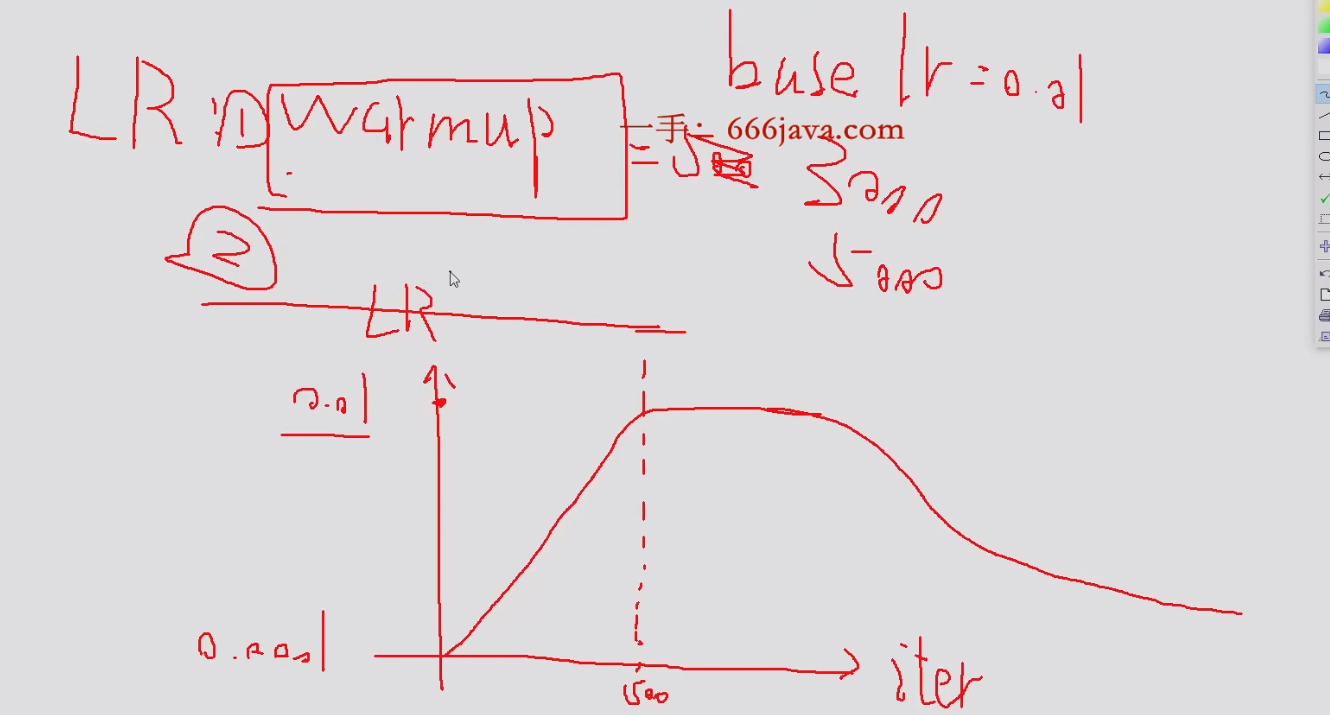 LR: ① warmup = 5
base lr = 0.01
一手: 666java.com
3000
5000
②
LR
0.01
0.0001
iter